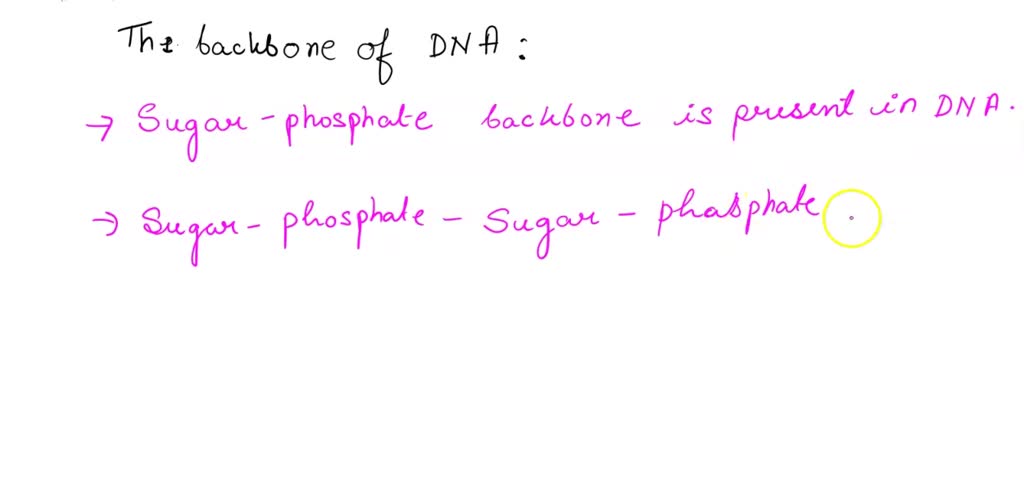 The backbone of DNA :
→ Sugar - phosphate backbone is present in DNA.
→ Sugar - phosphate - Sugar - phasphate